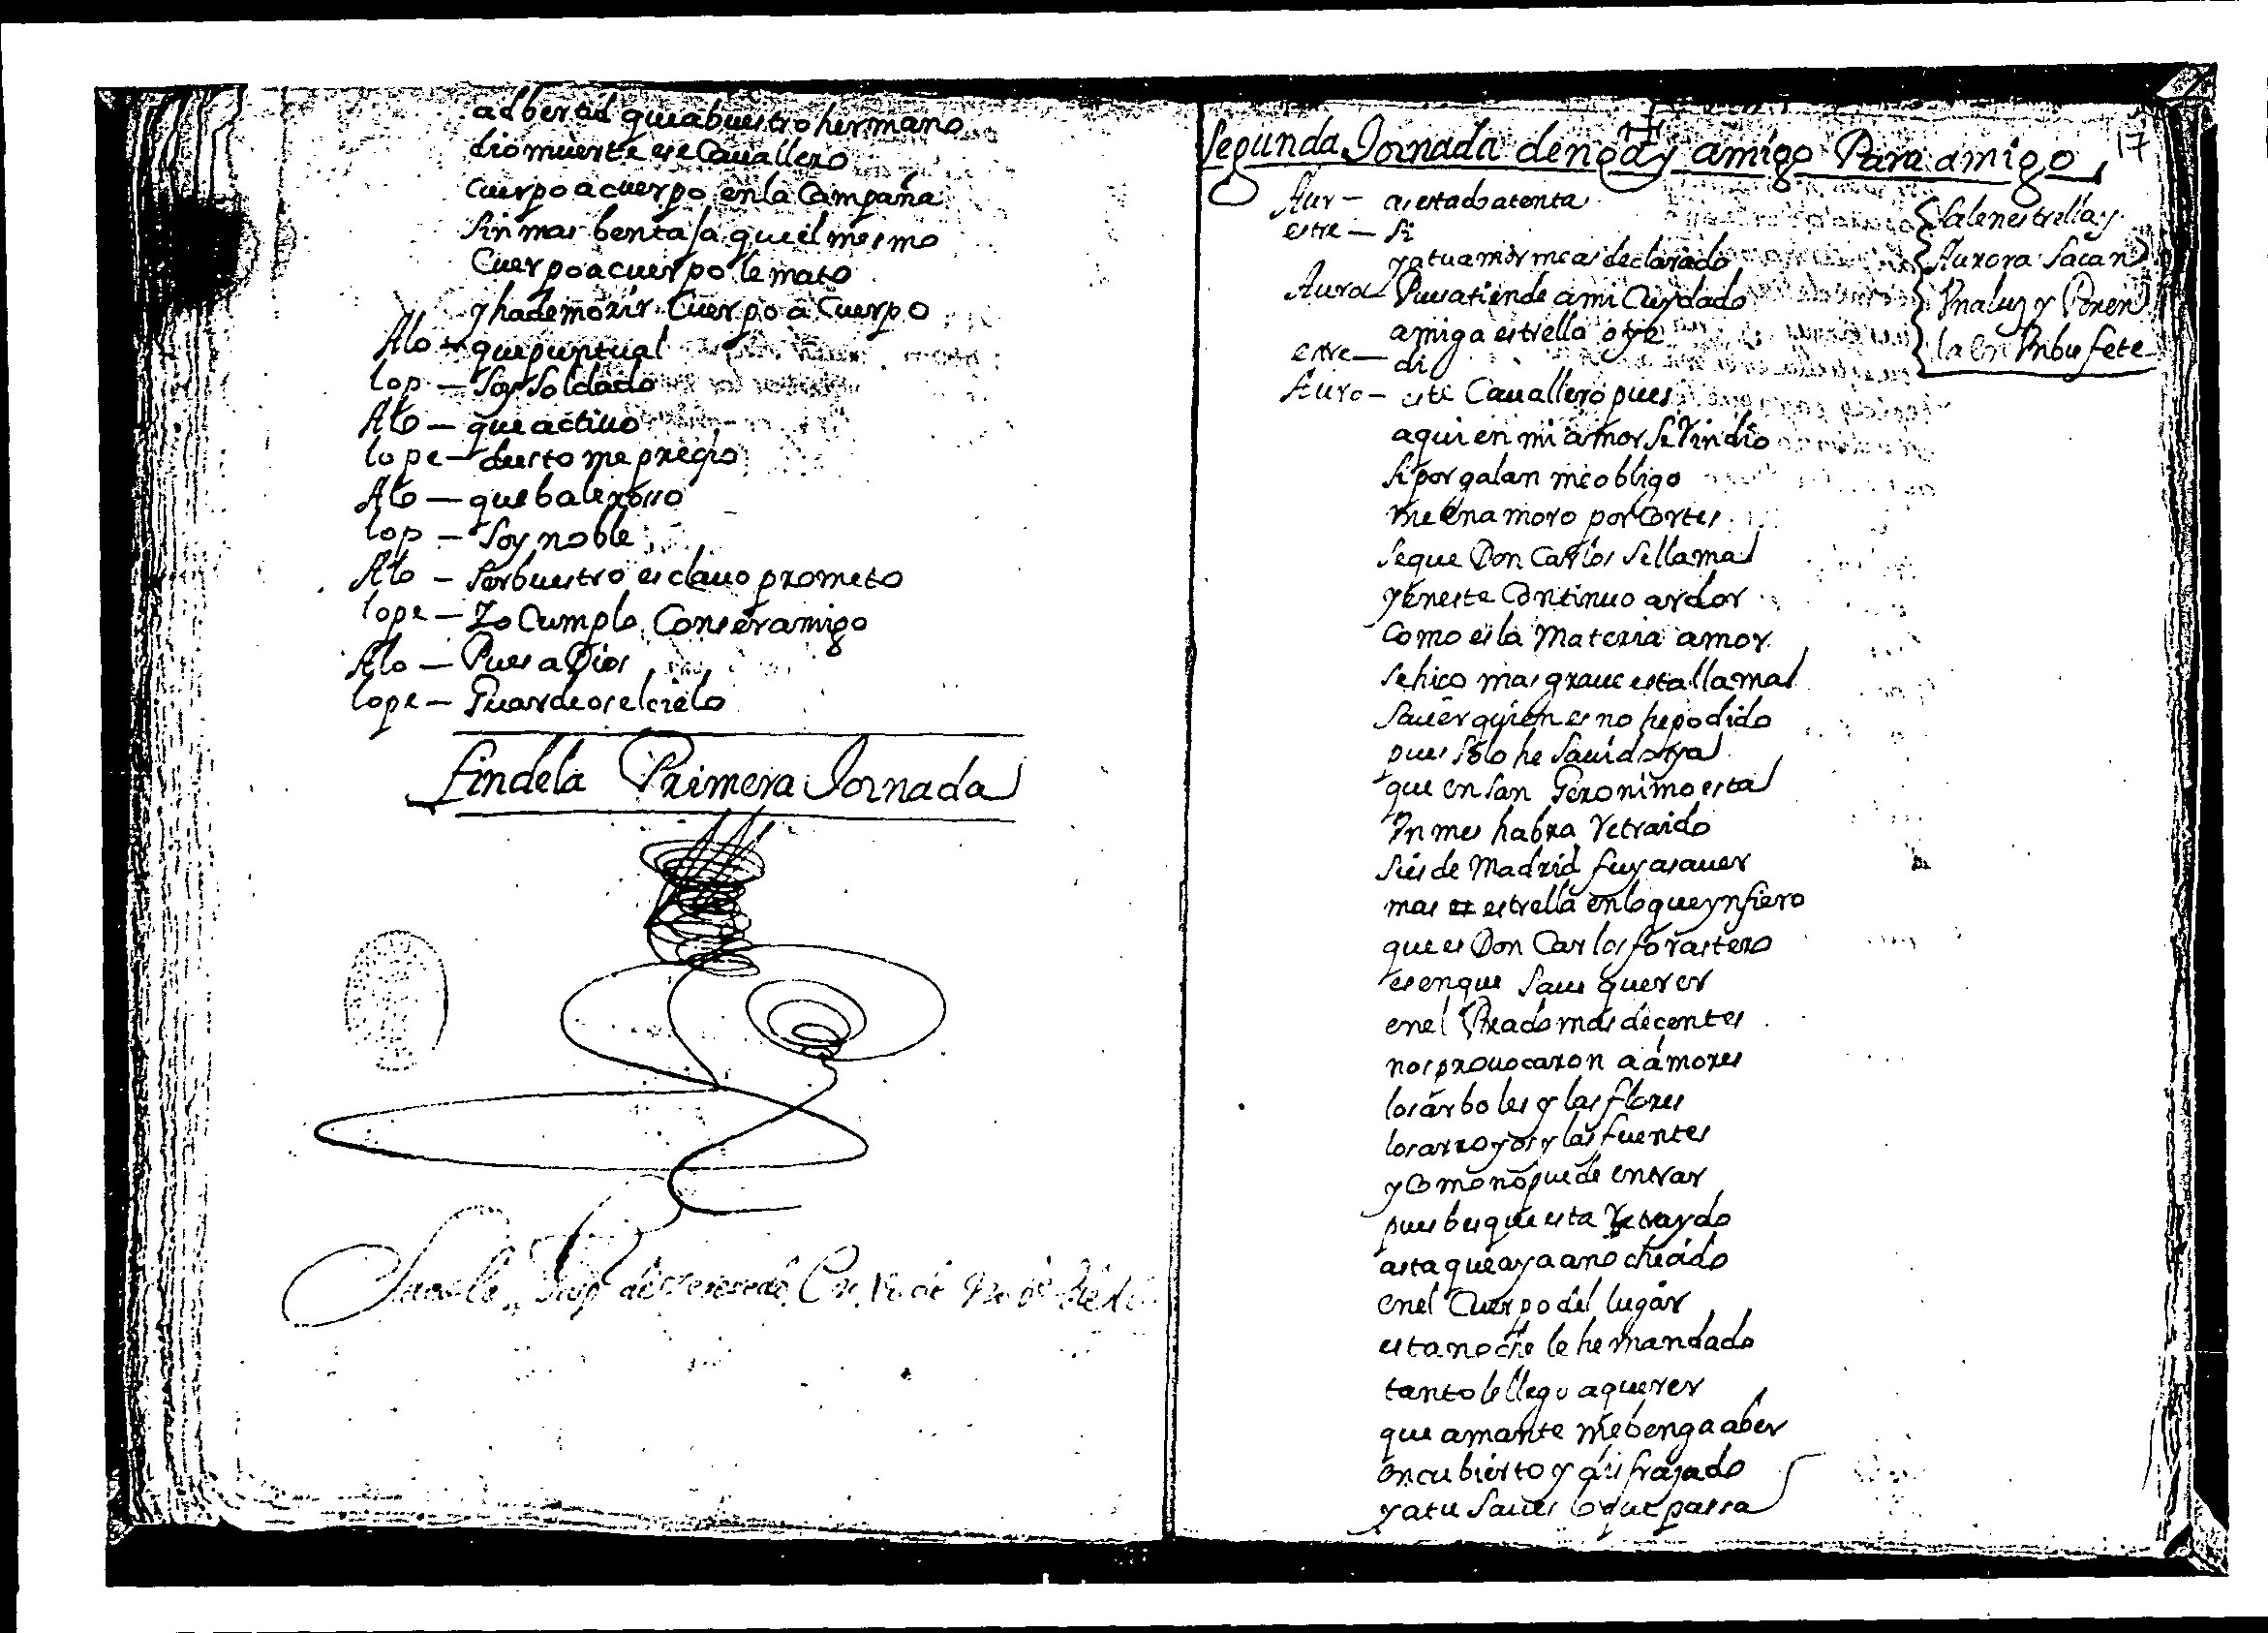 adbertid queabuestro hermano
dio muerte ese Cauallero
cuerpo a cuerpo en la Campaña
sin mas bentaja que el mesmo
Cuerpo a cuerpo le mato
y ha de morir Cuerpo a Cuerpo
Alo — que puntual
lop — Soy Soldado
Alo — que actiuo
lope — desto me precio
Alo — que balerosso
lop — Soy noble
Alo — Ser buestro esclauo prometo
lope — Yo Cumplo Con ser amigo
Alo — Pues a Dios
lope — Guardeos el cielo
fin de la Primera Jornada
17
Segunda Jornada de no ay amigo Para amigo
Salen estrella y
Aurora Sacan
Vna luz y Ponen
la en Vn bufete
Aur — as estado atenta
estre — Si
ya tu amor me as declarado
Auro — Pues atiende a mi Cuydado
amiga estrella oye
estre — di
Auro — este Cauallero pues
aqui en mi amor se Rindio
si por galan me obligo
me enamoro por Cortes
se que Don Carlos se llama
y en este Continuo ardor
Como es la Materia amor
se hico mas graue esta llama
sauer quien es no he podido
pues solo he sauido ya
que en San Geronimo esta
Vn mes habra Retraido
si es de Madrid fuy a sauer
mas estrella en lo que ynfiero
que es Don Carlos forastero
es en que Saue querer
en el Prado mas decentes
nos prouocaron a amores
los arboles y las flores
los arroyos y las fuentes
y Como no puede entrar
pues bes que esta Retraydo
asta que aya anochecido
en el Cuerpo del lugar
esta noche le he mandado
tanto le llego a querer
que amante me benga a ber
encubierto y disfrazado
ya tu Saues lo que passa